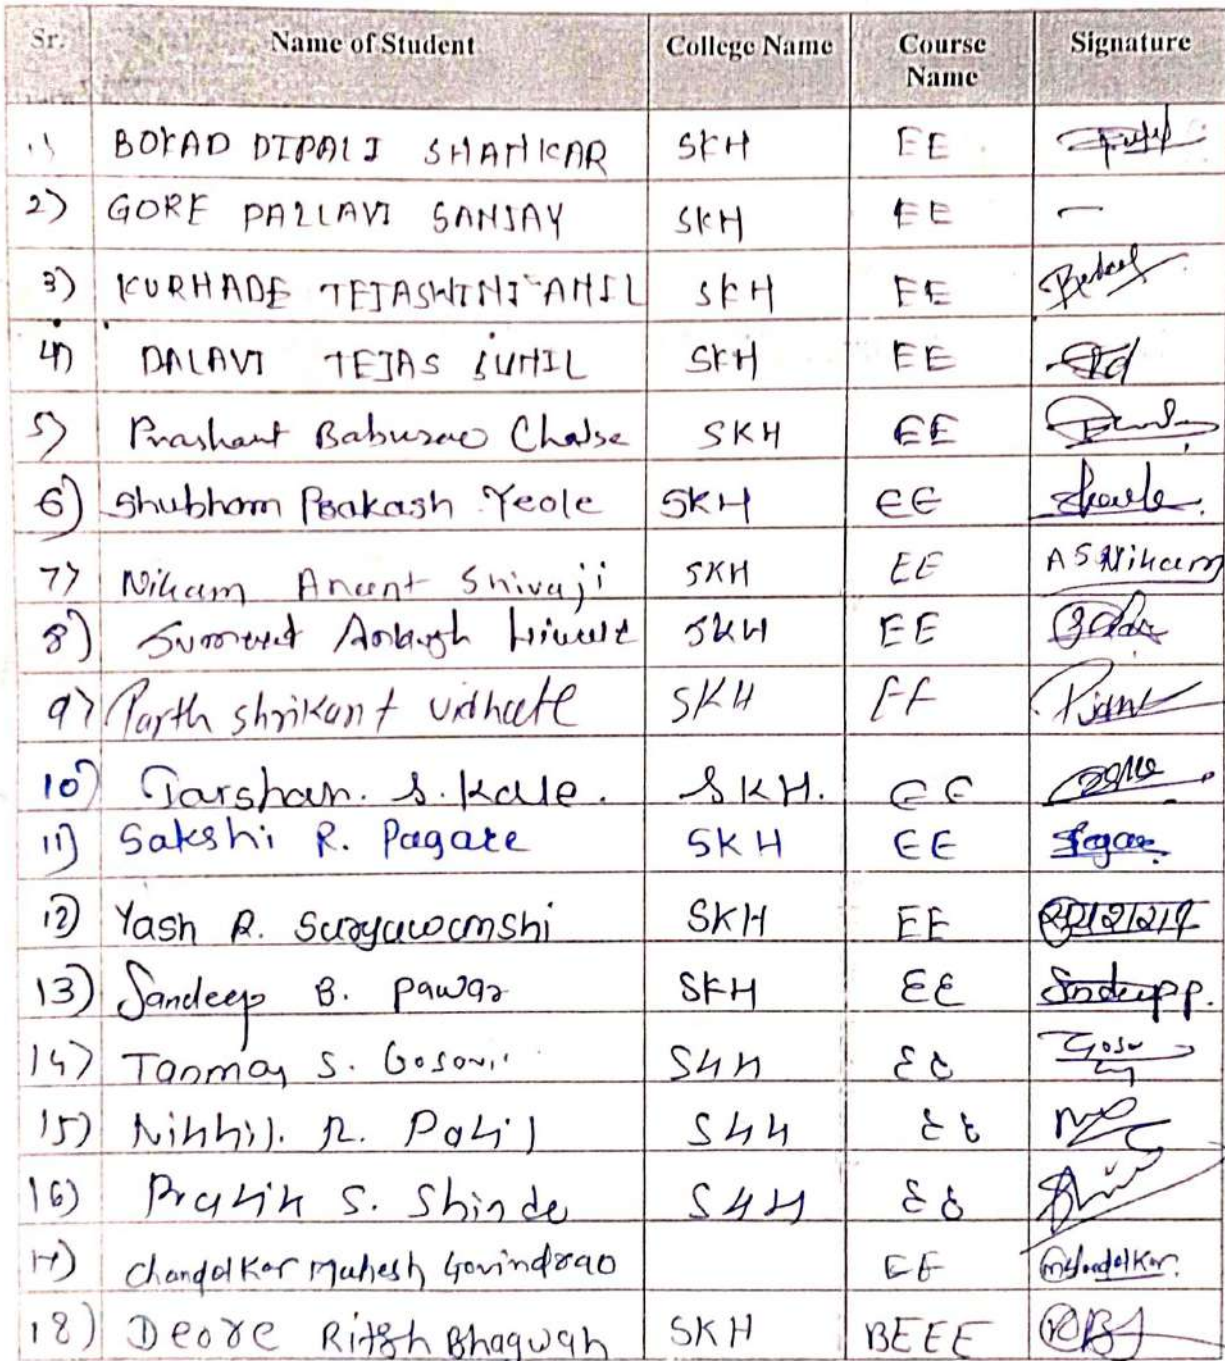 Sr. Name of Student College Name Course Name Signature
1) BOKAD DIPALI SHANKAR SKH EE
2) GORE PALLAVI SANJAY SKH EE –
3) KURHADE TEJASWINI ANIL SKH EE
4) DALAVI TEJAS SUNIL SKH EE
5) Prashant Baburao Chalse SKH EE
6) Shubham Prakash Yeole SKH EE
7) Nikam Anant Shivaji SKH EE A S Nikam
8) SKH EE
9) Parth Shrikant Vidhate SKH EE
10) Darshan. S. Kale. SKH. EE
11) Sakshi R. Pagare SKH EE
12) Yash R. Suryawanshi SKH EE
13) Sandeep B. Pawar SKH EE
14) Tanmay S. Gosavi SKH EE
15) Nikhil. R. Patil SKH EE
16) Pratik S. Shinde SKH EE
17) Chandolkar Mahesh Govindrao EE
18) Deore Ritesh Bhagwan SKH BEEE